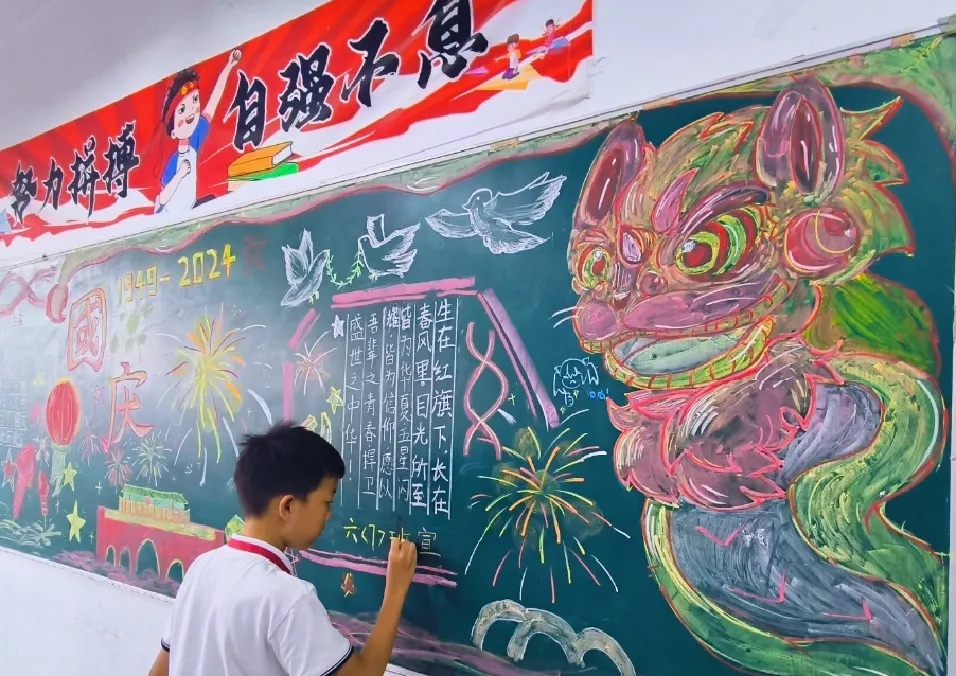 努力拼搏
自强不息
1949-2024
國
庆
生在红旗下,长在
春风里目光所至
皆为华夏五星闪
耀,皆为信仰愿以
吾辈之青春捍卫
盛世之中华!
六 宣